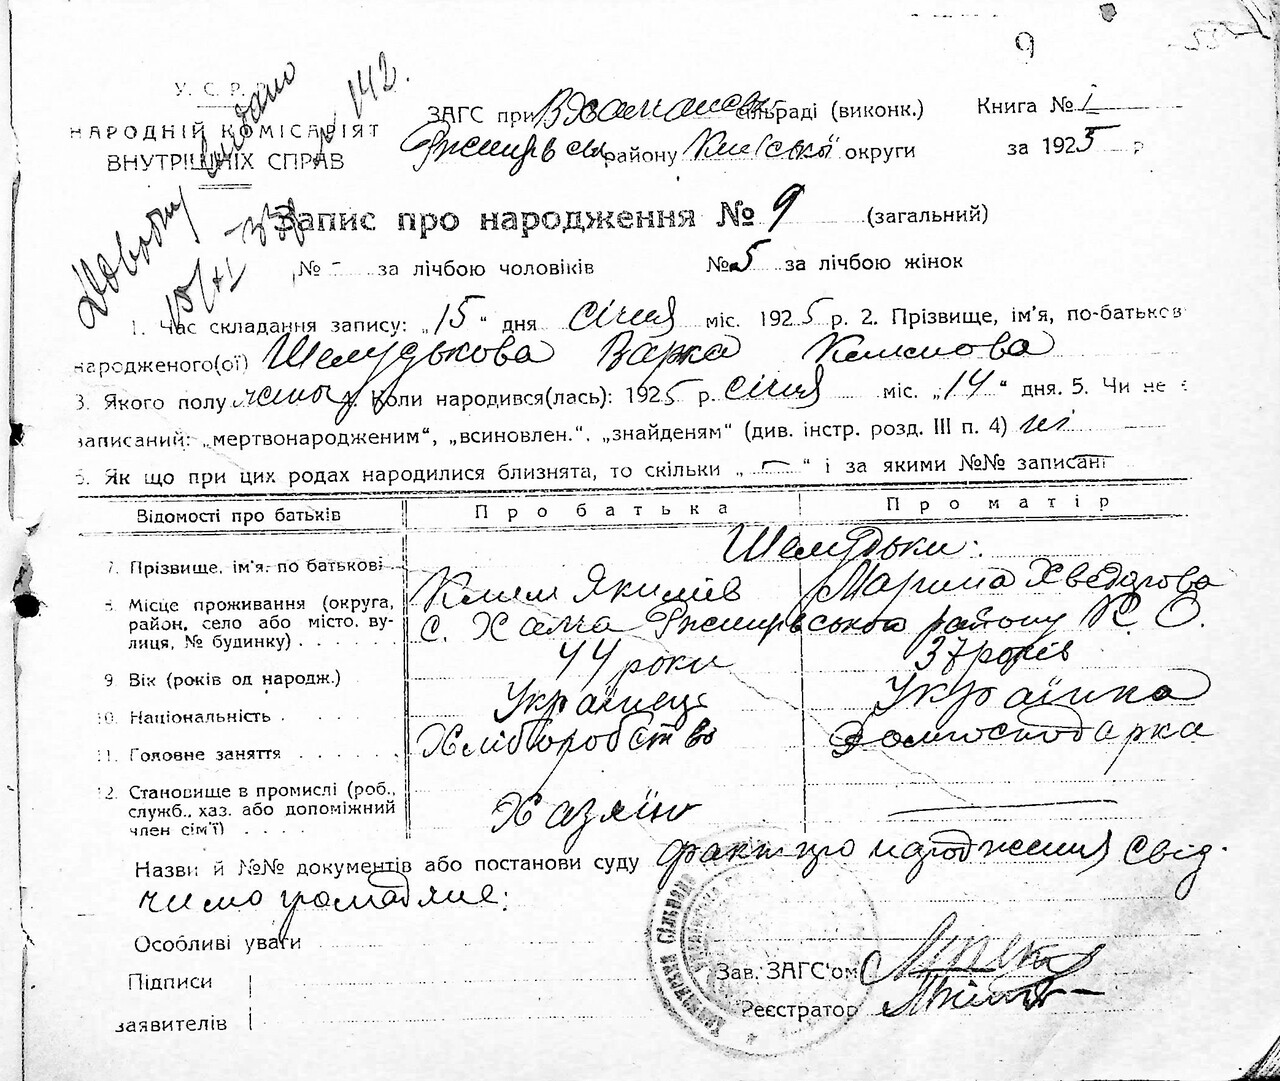 9
У. С. Р. Р.
НАРОДНІЙ КОМІСАРІЯТ
ВНУТРІШНІХ СПРАВ
Довідку видано
№ 142.
ЗАГС при сільраді (виконк.) Книга № 1
району Київської округи за 1925 р
Запис про народження № 9 (загальний)
№ - за лічбою чоловіків № 5 за лічбою жінок
1. Час складання запису: „15“ дня січня міс. 1925 р. 2. Прізвище, ім'я, по-батьков
народженого(ої) Шелудькова Варка Климова
3. Якого полу жіноч. 4. Коли народився(лась): 1925 р. січня міс. „14“ дня. 5. Чи не є
записаний: „мертвонародженим“, „всиновлен.“, „знайденям“ (див. інстр. розд. III п. 4) ні
6. Як що при цих родах народилися близнята, то скільки „ — “ і за якими №№ записані
Відомості про батьків Про батька Про матір
Шелудьки:
7. Прізвище, ім'я, по батькові Клим Якимів Марина Хведорова
8. Місце проживання (округа,
район, село або місто, ву-
лиця, № будинку) с. району К. О.
9. Вік (років од народж.) 44 роки 37 років
10. Національність Українець Українка
11. Головне заняття Хліборобство Домгосподарка
12. Становище в промислі (роб.,
служб., хаз. або допоміжний
член сім'ї) Хазяїн —
Назви й №№ документів або постанови суду факт цю народження свід-
чимо громадяне:
Особливі уваги
Підписи
заявителів
Зав. ЗАГС'ом
Реєстратор